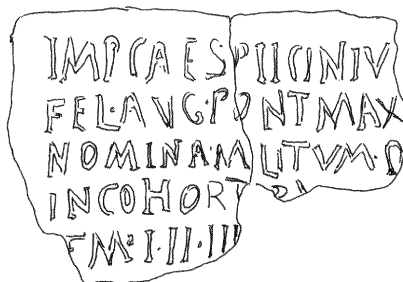 IMP CAES P IICINIV
FEL·AVG·PONT MAX
NOMINA MLITVM·
IN COHORT
I·II·III